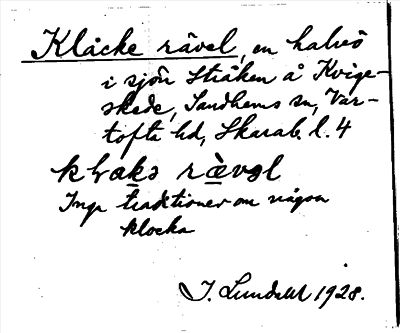 Klåcke rävel, en halvö
i sjön Stråken å Kvige-
skede, Sandhems sn, Var-
tofta hd, Skarab. l. 4
klɷkə rævəl
Inga traditioner om någon
klocka
J. Lundahl 1928.